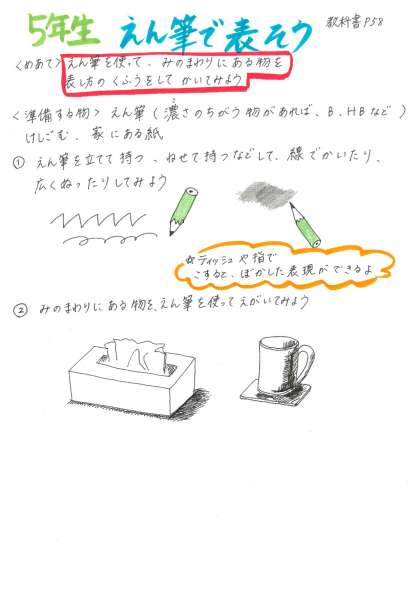 5年生 えん筆で表そう 教科書P58
<めあて> えん筆を使って、みのまわりにある物を
表し方のくふうをして かいてみよう
<準備する物> えん筆(濃さのちがう物があれば、B、HBなど)
こ
けしごむ、家にある紙
① えん筆を立てて持つ、ねせて持つなどして、線でかいたり、
広くぬったりしてみよう
☆ティッシュや指で
こすると、ぼかした表現ができるよ
② みのまわりにある物を、えん筆を使ってえがいてみよう